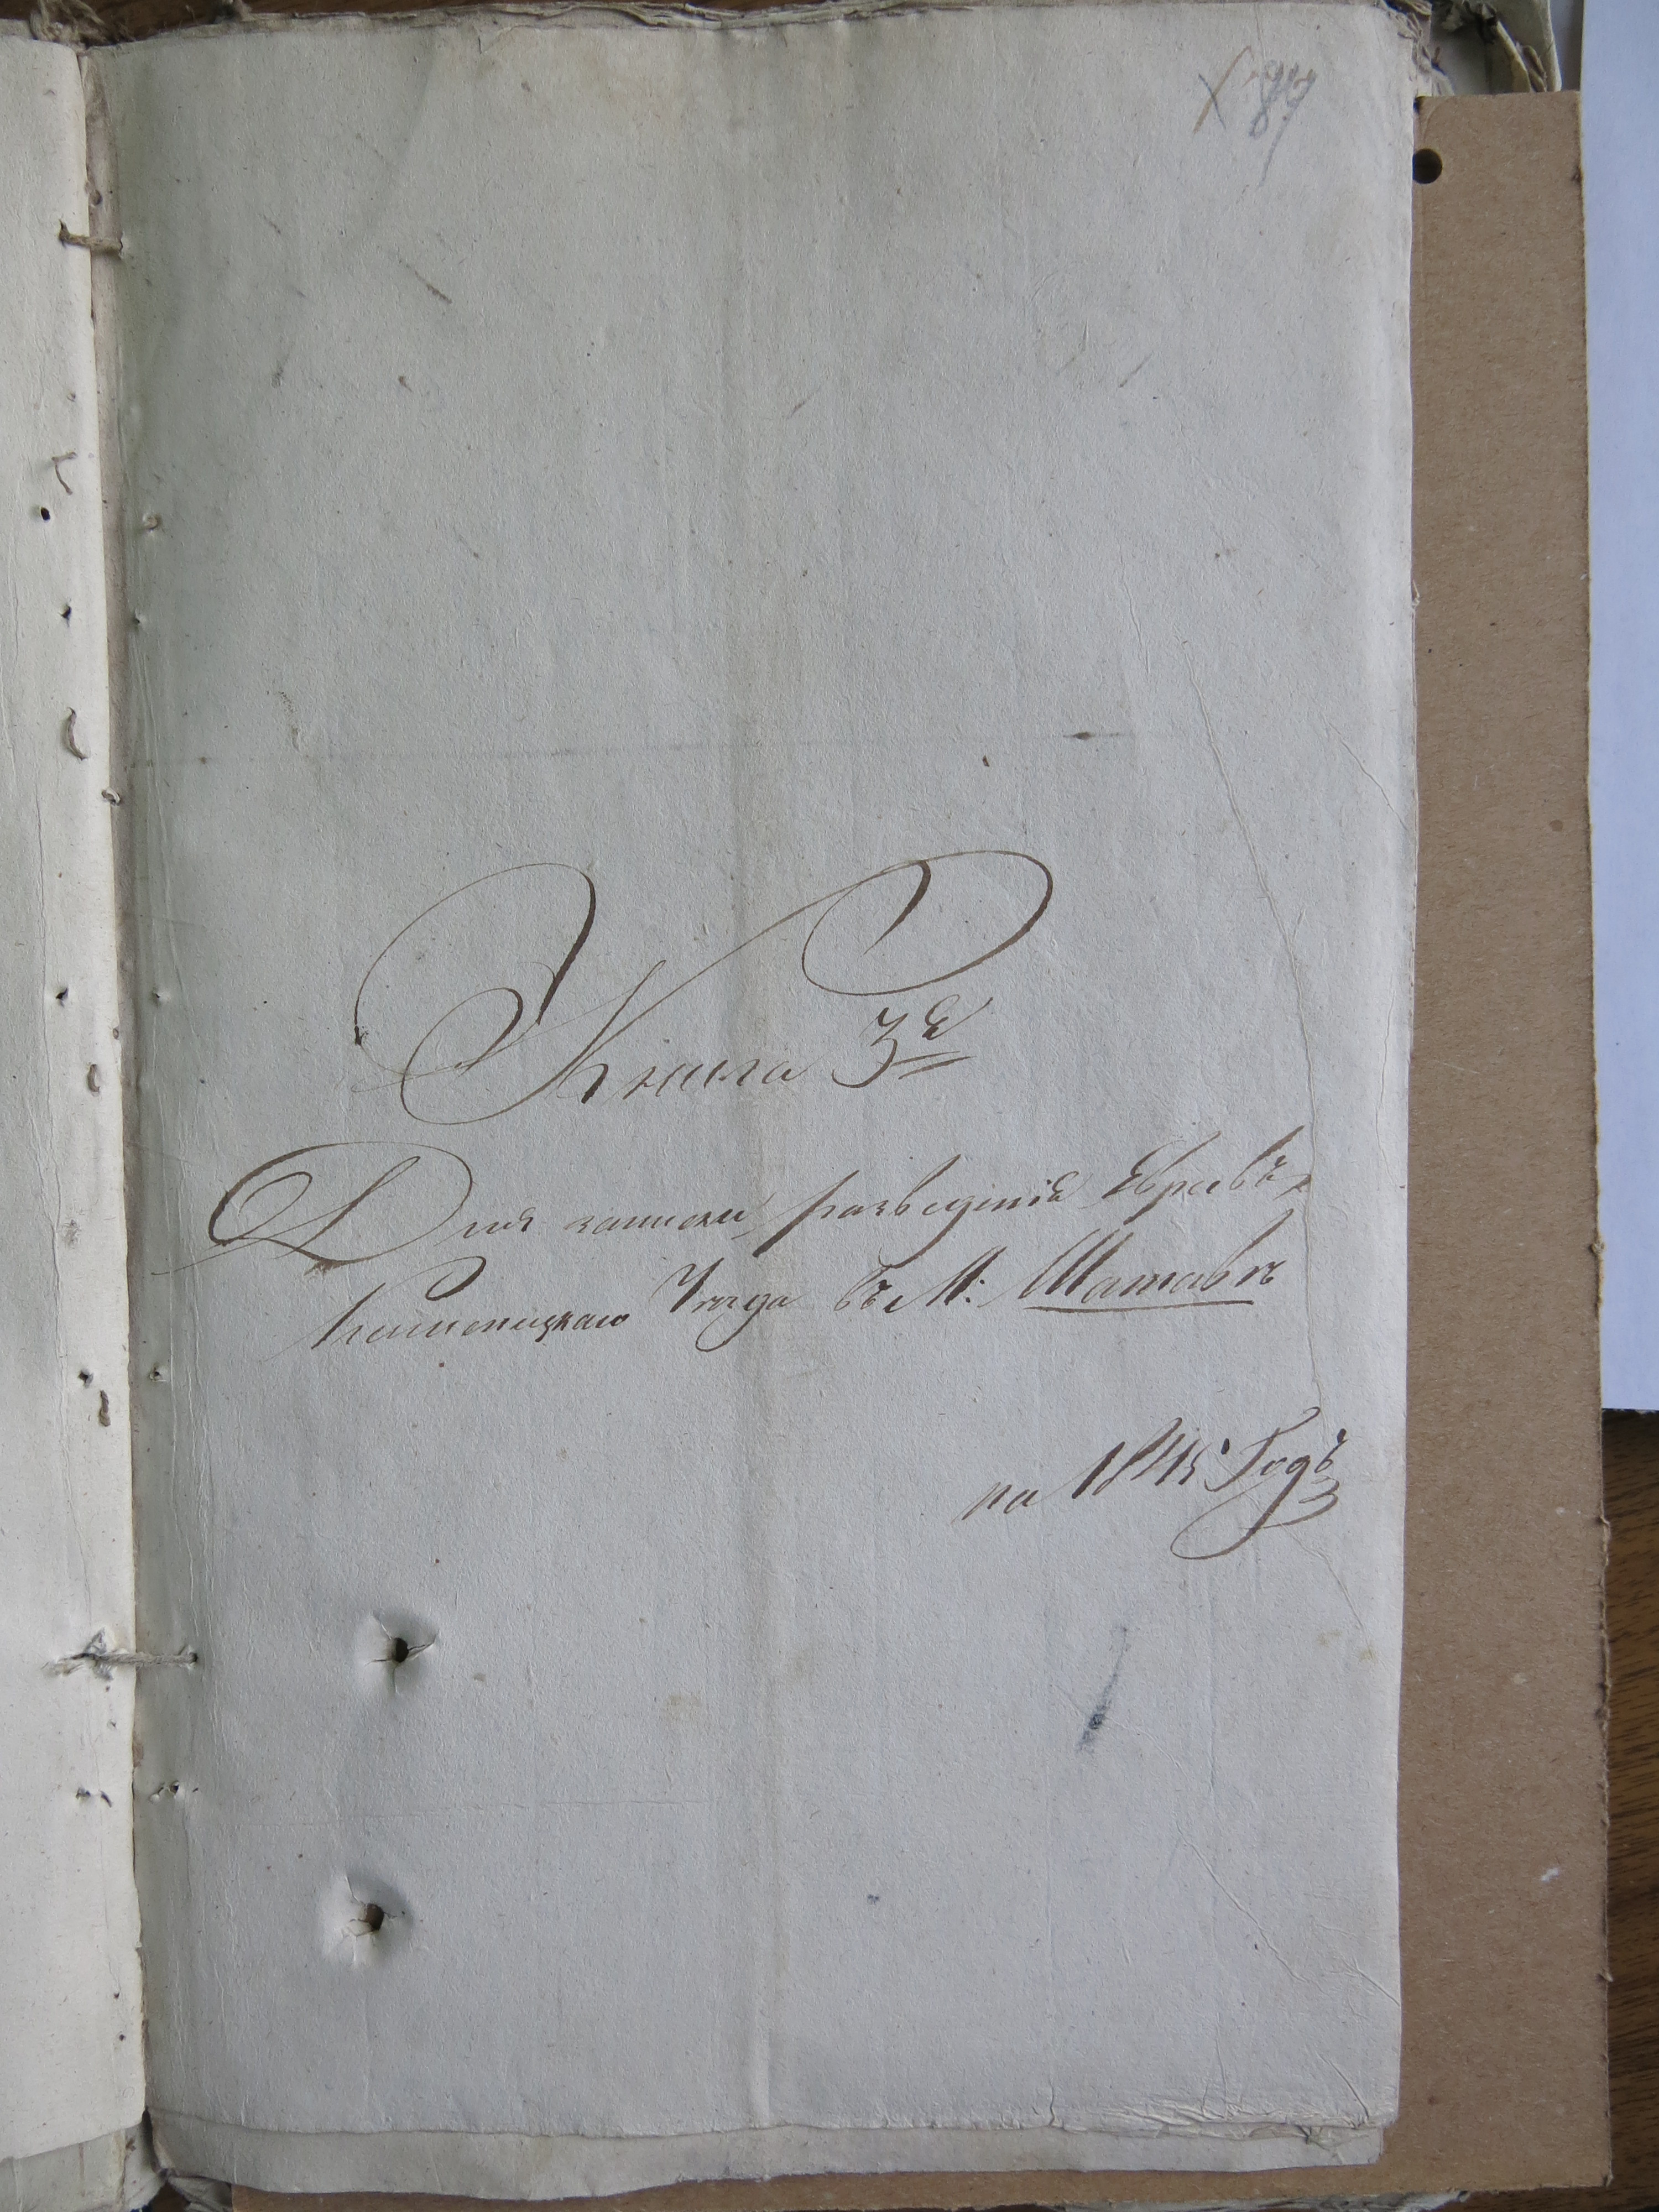 87
Книга 3я
Для записки разведенiя Евреевъ
Каменецкаго Уезда въ М: Шатавѣ
на 1845 Годъ